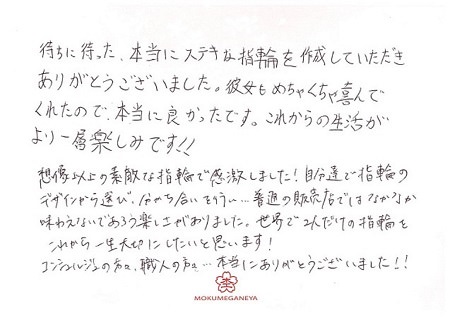 待ちに待った、本当にステキな指輪を作成していただき
ありがとうございました。彼女もめちゃくちゃ喜んで
くれたので、本当に良かったです。これからの生活が
より一層楽しみです!!
想像以上の素敵な指輪で感激しました!自分達で指輪の
デザインから選び、分かち合いを行い…普通の販売店ではなかなか
味わえないであろう楽しさがありました。世界で2人だけの指輪を
これから一生大切にしたいと思います!
コンシェルジュの方々、職人の方々…本当にありがとうございました!!
MOKUMEGANEYA